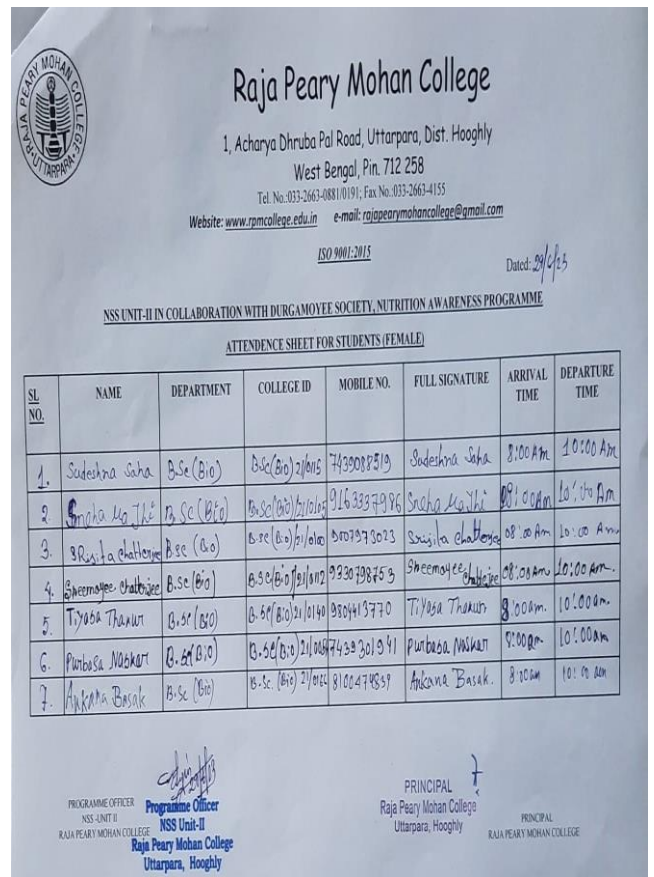 RAJA PEARY MOHAN COLLEGE
UTTARPARA
Raja Peary Mohan College
1, Acharya Dhruba Pal Road, Uttarpara, Dist. Hooghly
West Bengal, Pin. 712 258
Tel. No.:033-2663-0881/0191; Fax No.:033-2663-4155
Website: www.rpmcollege.edu.in e-mail: rajapearymohancollege@gmail.com
ISO 9001:2015
Dated:
NSS UNIT-II IN COLLABORATION WITH DURGAMOYEE SOCIETY, NUTRITION AWARENESS PROGRAMME
ATTENDENCE SHEET FOR STUDENTS (FEMALE)
SL NO. NAME DEPARTMENT COLLEGE ID MOBILE NO. FULL SIGNATURE ARRIVAL TIME DEPARTURE TIME
1. Sudeshna Saha B.Sc (Bio) B.Sc(Bio) 21/0115 7439088519 Sudeshna Saha 8:00 Am 10:00 Am
2. Sneha Majhi B.Sc (Bio) 9163337986 Sneha Majhi 10:00 Am
3. Srijita Chatterjee B.Sc (Bio) Srijita Chatterjee 08:00 Am 10:00 Am
4. Sreemoyee Chatterjee B.Sc (Bio) B.Sc(Bio)/21/0112 9330798753 Sreemoyee Chatterjee 08:00 Am 10:00 Am.
5. Tiyasa Thakur B.Sc (Bio) B.Sc(Bio)21/0140 9804413770 Tiyasa Thakur 8:00am. 10:00am.
6. Purbasa Naskar B.Sc (Bio) 7439301941 Purbasa Naskar 8:00am 10:00am
7. Ankana Basak B.Sc (Bio) 8100474839 Ankana Basak. 8:00am 10:00 am
PROGRAMME OFFICER
NSS -UNIT II
RAJA PEARY MOHAN COLLEGE
Programme Officer
NSS Unit-II
Raja Peary Mohan College
Uttarpara, Hooghly
PRINCIPAL
Raja Peary Mohan College
Uttarpara, Hooghly
PRINCIPAL
RAJA PEARY MOHAN COLLEGE